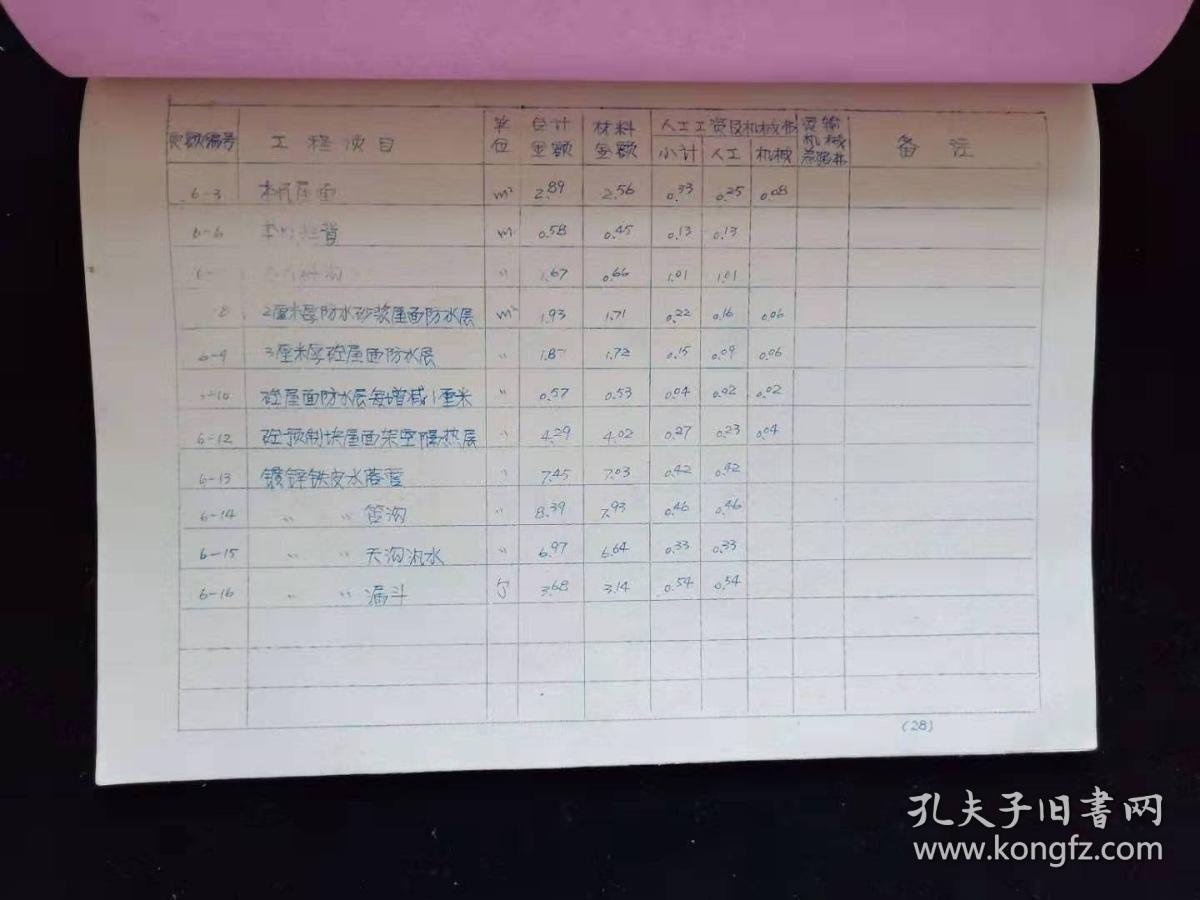 定额编号 工程项目 单位 合计金额 材料金额 人工工资及机械费 小计 人工 机械 运输机械 备注
6-3 屋面 m² 2.89 2.56 0.33 0.25 0.08
6-6 脊 m 0.58 0.45 0.13 0.13
6- 沟 〃 1.67 0.66 1.01 1.01
8 2厘米厚防水砂浆屋面防水层 m² 1.93 1.71 0.22 0.16 0.06
6-9 3厘米厚砼屋面防水层 〃 1.87 1.72 0.15 0.09 0.06
-10 砼屋面防水层每增减1厘米 〃 0.57 0.53 0.04 0.02 0.02
6-12 砼预制块屋面架空隔热层 〃 4.29 4.02 0.27 0.23 0.04
6-13 镀锌铁皮水落管 〃 7.45 7.03 0.42 0.42
6-14 〃 〃 沟 〃 8.39 7.93 0.46 0.46
6-15 〃 〃 天沟汎水 〃 6.97 6.64 0.33 0.33
6-16 〃 〃 漏斗 个 3.68 3.14 0.54 0.54
(28)
孔夫子旧書网
www.kongfz.com